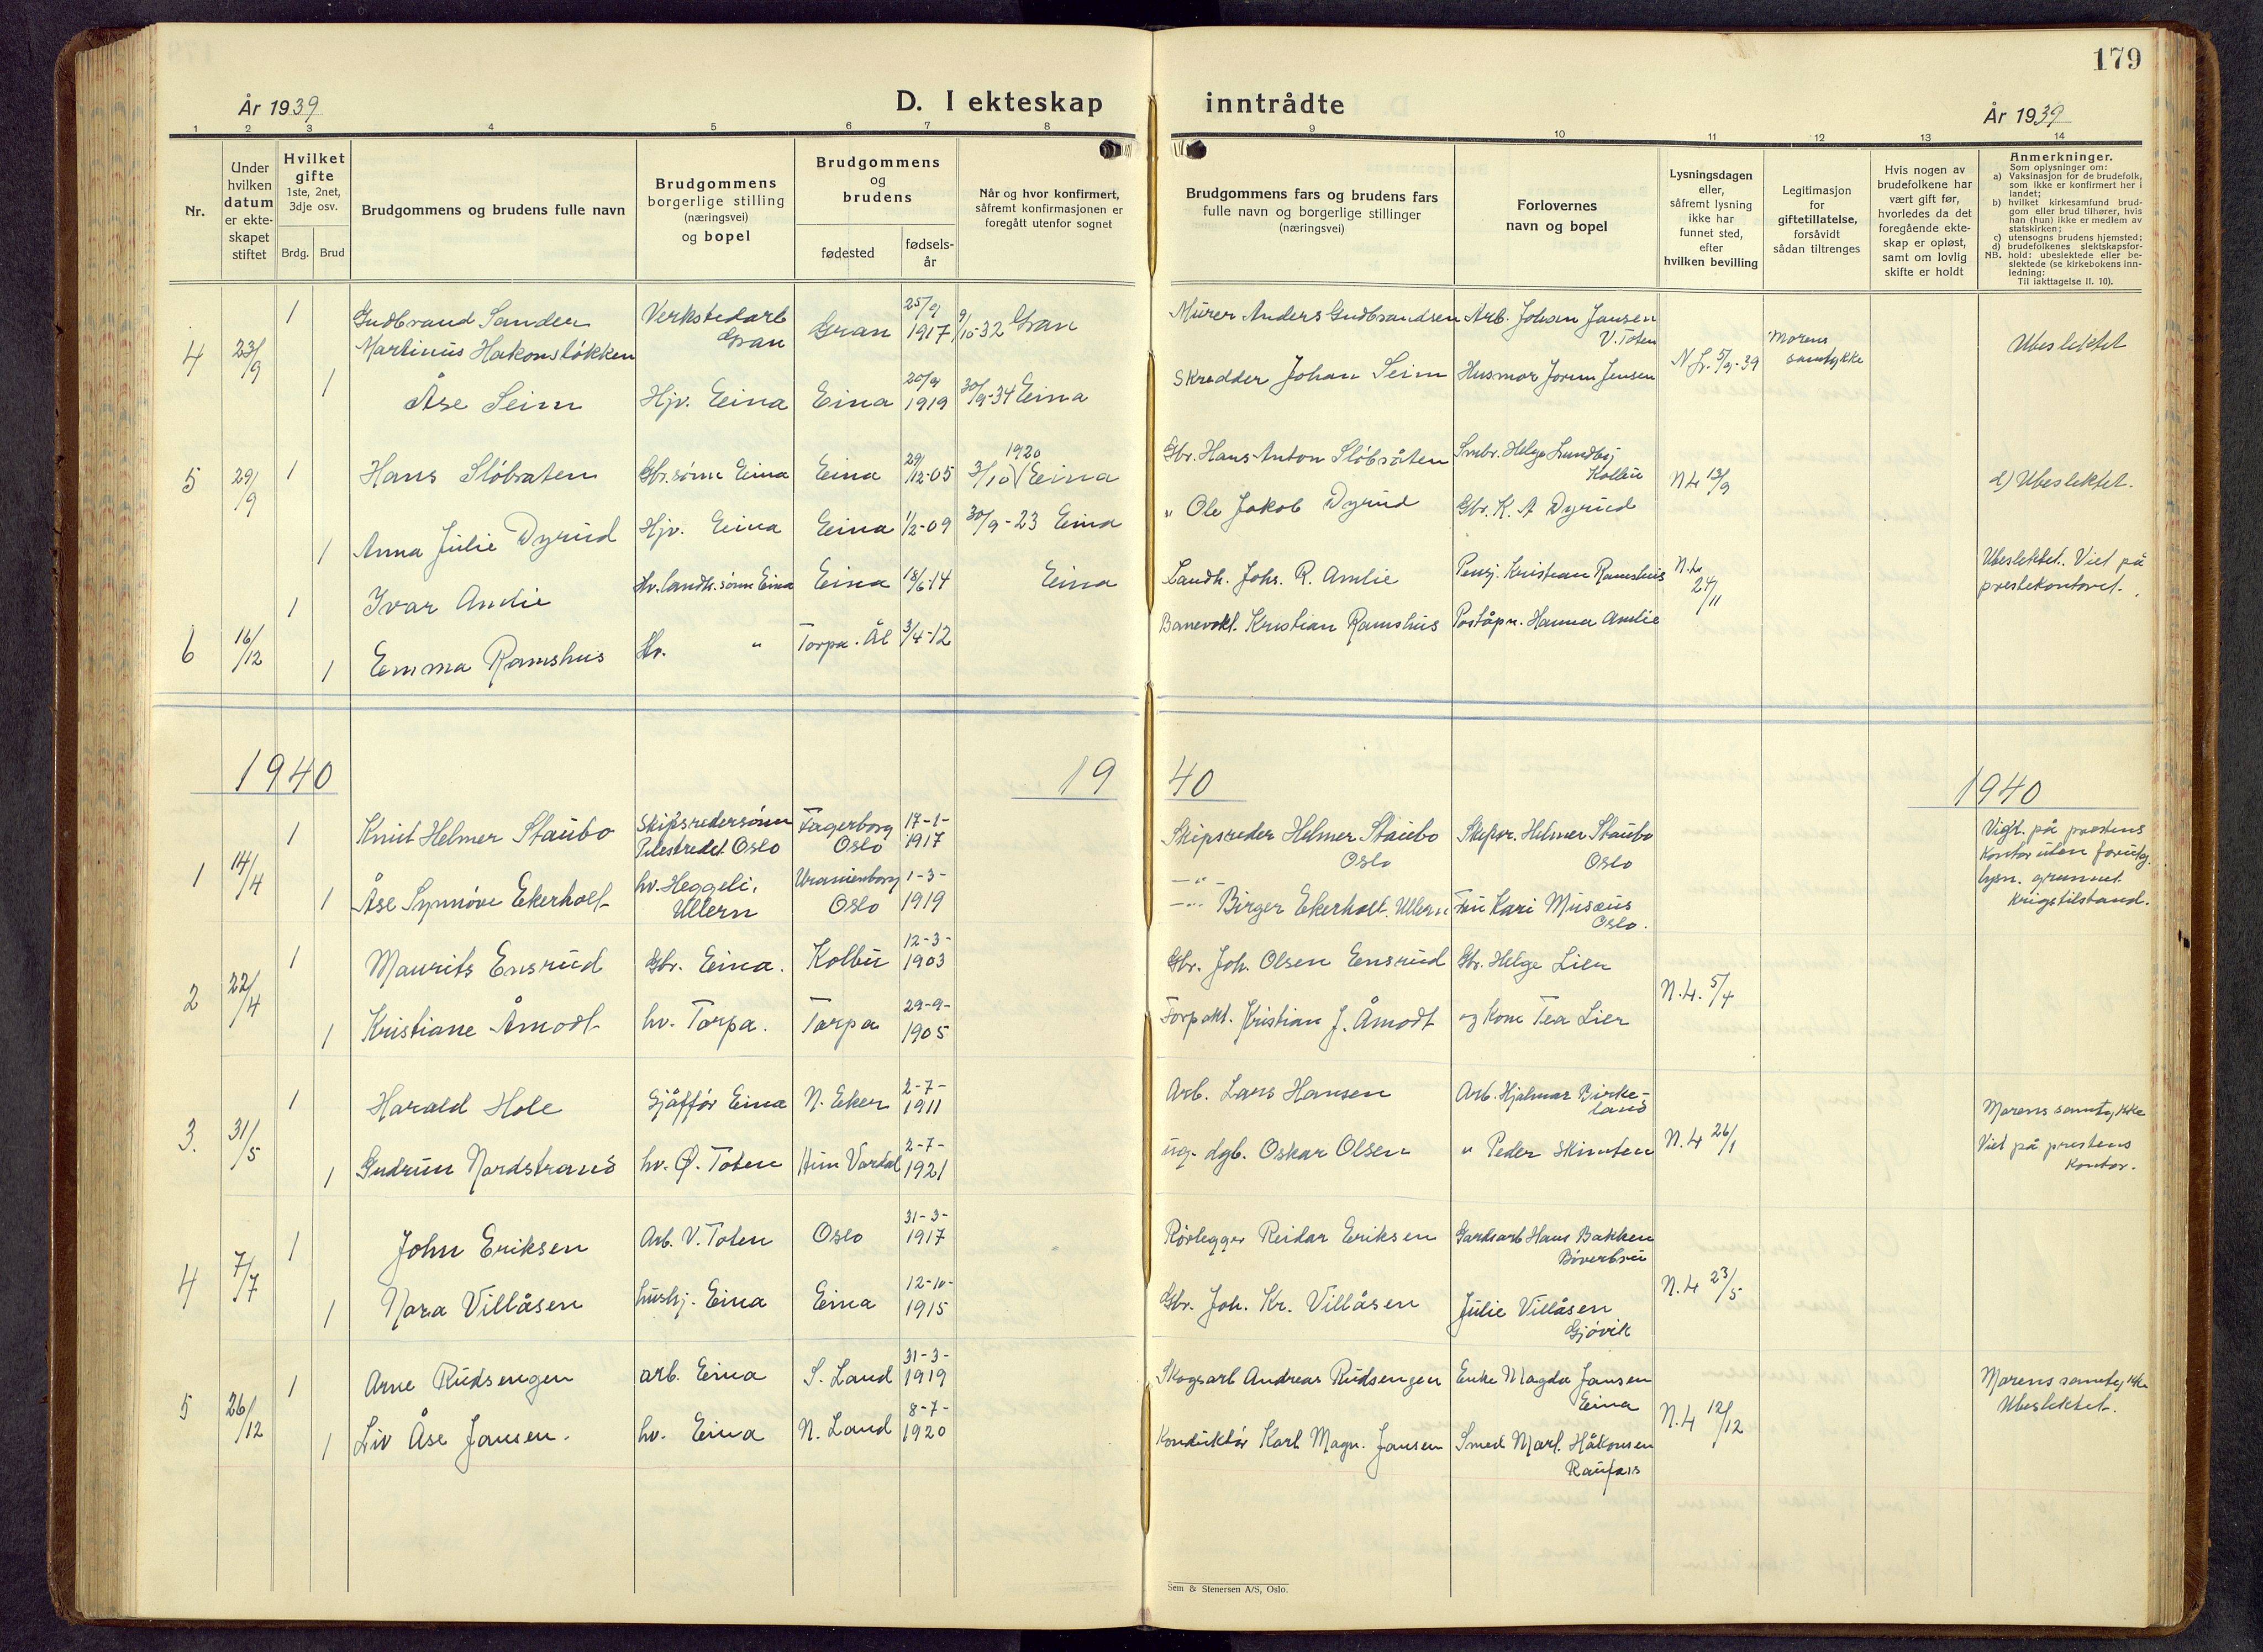 179
År 1939
D. I ekteskap inntrådte
År 1939
1 2 3 4 5 6 7 8 9 10 11 12 13 14
Nr.
Under
hvilken
datum
er ekte-
skapet
stiftet
Hvilket
gifte
1ste, 2net,
3dje osv.
Brdg. Brud
Brudgommens og brudens fulle navn
Brudgommens
borgerlige stilling
(næringsvei)
og bopel
Brudgommens
og
brudens
fødested
fødsels-
år
Når og hvor konfirmert,
såfremt konfirmasjonen er
foregått utenfor sognet
Brudgommens fars og brudens fars
fulle navn og borgerlige stillinger
(næringsvei)
Forlovernes
navn og bopel
Lysningsdagen
eller,
såfremt lysning
ikke har
funnet sted,
efter
hvilken bevilling
Legitimasjon
for
giftetillatelse,
forsåvidt
sådan tiltrenges
Hvis nogen av
brudefolkene har
vært gift før,
hvorledes da det
foregående ekte-
skap er opløst,
samt om lovlig
skifte er holdt
Anmerkninger.
Som oplysninger om:
a) Vaksinasjon for de brudefolk,
som ikke er konfirmert her i
landet;
b) hvilket kirkesamfund brud-
gom eller brud tilhører, hvis
han (hun) ikke er medlem av
statskirken;
c) utensogns brudens hjemsted;
d) brudefolkenes slektskapsfor-
NB. hold: ubeslektede eller be-
slektede (se kirkebokens inn-
ledning:
Til iakttagelse II. 10).
4 23/9 1 Gudbrand Sander
Martinus Hakonsløkken
Verkstedarb
Gran
Gran 25/9 1917 9/10-32 Gran
Murer Anders Gudbrandsen Arb. Johan Jansen
V. Toten
N. L. 5/9-39
Morens
samtykke
Ubeslektet
1 Åse Seim Hjv. Eina Eina 20/9 1919 30/9-34 Eina
Skredder Johan Seim Husmor Jorun Jensen
5 29/9 1 Hans Sløbraten Gbr. sønn Eina Eina 29/12-05 3/10 1920 Eina
Gbr. Hans Anton Sløbråten Smbr. Helge Lundby
Kolbu
N L 13/9
d) Ubeslektet.
1 Anna Julie Dyrud Hjv. Eina Eina 1/2-09 30/9-23 Eina
" Ole Jakob Dyrud Gbr. K. A Dyrud
6 16/12 1 Ivar Amlie Hv. landh. sønn Eina Eina 18/6-14 Eina
Landh. Johs. R. Amlie Pensj. Kristian Ramshus N. L. 24/11
Ubeslektet. Viet på
prestekontoret.
1 Emma Ramshus Hv. " Torpa. Ål 3/4-12
Banevokt. Kristian Ramshus Poståpn. Hanna Amlie
1940 19 40 1940
1 14/4 1 Knut Helmer Staubo
Skipsredersønn
Pilestredet Oslo
Fagerborg
Oslo
17-1-
1917
Skipsreder Helmer Staubo
Oslo
Skipsr. Helmer Staubo
Oslo
Vigt. på prestens
kontor uten forutg.
lysn. grunnet
krigstilstand.
1 Åse Synnøve Ekerholt
hv. Heggeli,
Ullern
Uranienborg
Oslo
1-3-
1919
—"— Birger Ekerholt. Ullern Fru Kari Musæus
Oslo.
2 22/4 1 Maurits Ensrud Gbr. Eina. Kolbu 12-3-
1903
Gbr. Joh. Olsen Ensrud Gbr. Helge Lien
N. L. 5/4
1 Kristiane Åmodt hv. Torpa. Torpa 29-9-
1905
Forpakt. Kristian J. Åmodt og Kone Tea Lier
3. 31/5 1 Harald Hole Sjåffør Eina N. Eker 2-7-
1911
Arb. Lars Hansen Arb. Hjalmar Birke-
land
N. L 26/1
Morens samtykke
Viet på prestens
kontor.
1 Gudrun Nordstrand hv. Ø. Toten Hun Vardal 2-7-
1921
ug. dgb. Oskar Olsen " Peder Skinten
4 7/7 1 John Eriksen Arb. V. Toten Oslo 31-3-
1917
Rørlegger Reidar Eriksen Gardsarb Hans Bakken
Bøverbru
N. L 23/5
1 Nora Villåsen hushj. Eina Eina 12-10-
1915
Gbr. Joh. Kr. Villåsen Julie Villåsen
Gjøvik
5 26/12 1 Arne Rudsengen arb. Eina S. Land 31-3-
1919
Skogsarb Andreas Rudsengen Enke Magda Jansen
Eina
N. L 12/12
Morens samtykke
Ubeslektet.
1 Liv Åse Jansen. hv. Eina N. Land 8-7-
1920
Konduktør Karl Magn. Jansen Smed Marl. Håkonsen
Raufoss
Sem & Stenersen A/S, Oslo.